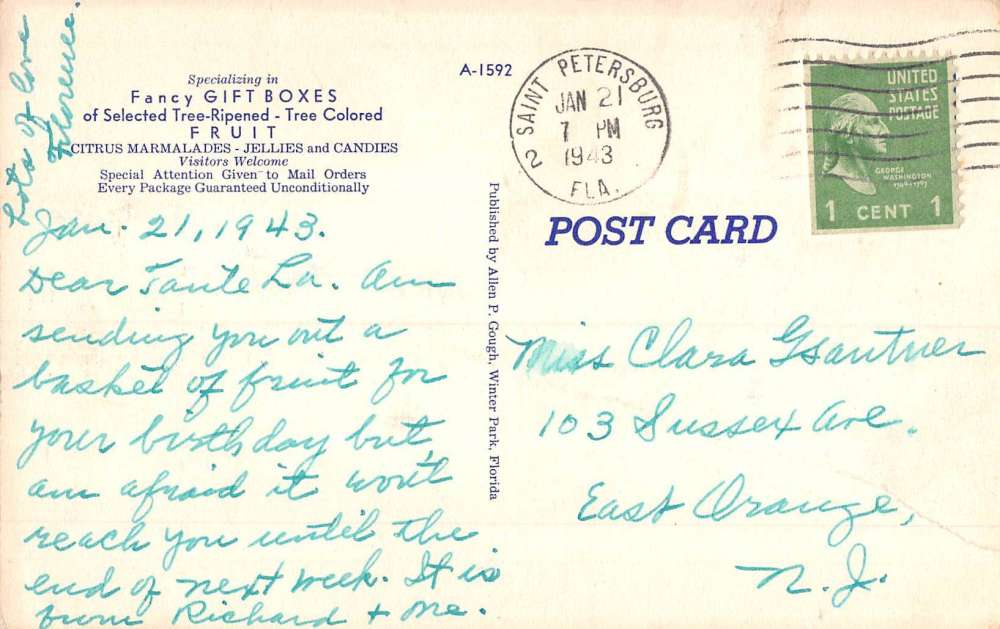 Specializing in
Fancy GIFT BOXES
of Selected Tree-Ripened - Tree Colored
FRUIT
CITRUS MARMALADES - JELLIES and CANDIES
Visitors Welcome
Special Attention Given to Mail Orders
Every Package Guaranteed Unconditionally
Jan. 21, 1943.
Dear Tante La. Am
sending you out a
basket of fruit for
your birthday but
am afraid it won't
reach you until the
end of next week. It is
from Richard + me.
Lots of love
Florence.
Published by Allen P. Gough, Winter Park, Florida
A-1592
SAINT PETERSBURG
JAN 21
7 PM
1943
2
FLA.
UNITED
STATES
POSTAGE
GEORGE
WASHINGTON
1 CENT 1
POST CARD
Miss Clara
103 Sussex Ave.
East Orange,
N. J.